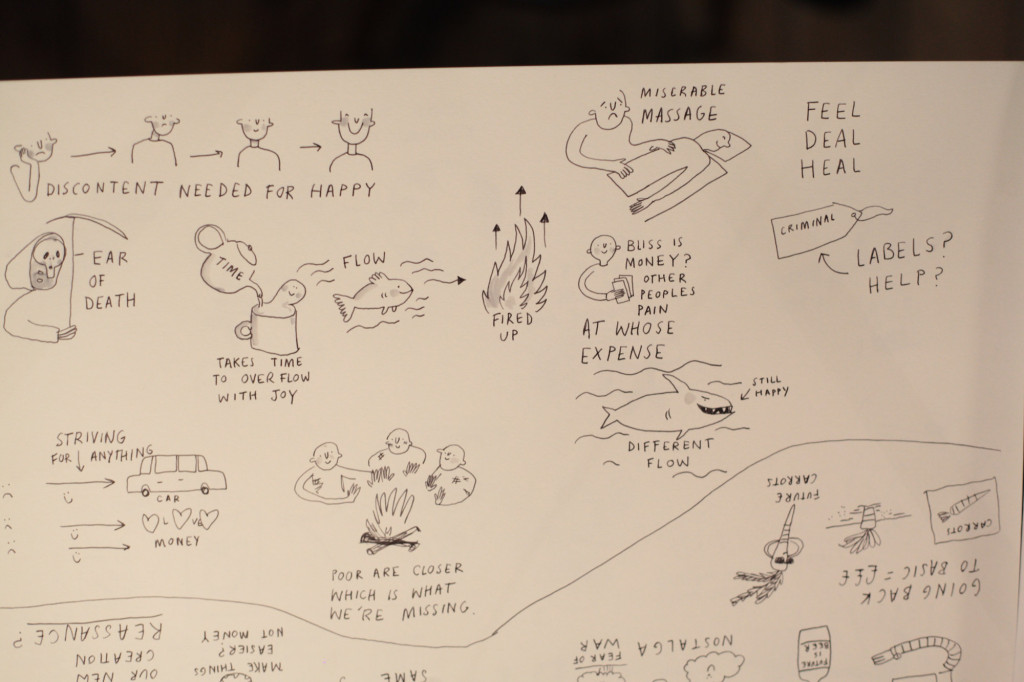 DISCONTENT NEEDED FOR HAPPY
MISERABLE
MASSAGE
FEEL
DEAL
HEAL
EAR
OF
DEATH
TIME
TAKES TIME
TO OVERFLOW
WITH JOY
FLOW
FIRED
UP
BLISS IS
MONEY?
OTHER
PEOPLES
PAIN
AT WHOSE
EXPENSE
CRIMINAL
LABELS?
HELP?
STILL
HAPPY
DIFFERENT
FLOW
STRIVING
FOR ANYTHING
CAR
MONEY
POOR ARE CLOSER
WHICH IS WHAT
WE'RE MISSING.
FUTURE
CARROTS
CARROT!
GOING BACK
TO BASIC = £££
REASSANCE?
OUR NEW
CREATION
MAKE THINGS
EASIER?
NOT MONEY
SAME
FEAR OF
WAR
NOSTALGA
FUTURE
IS
BEER